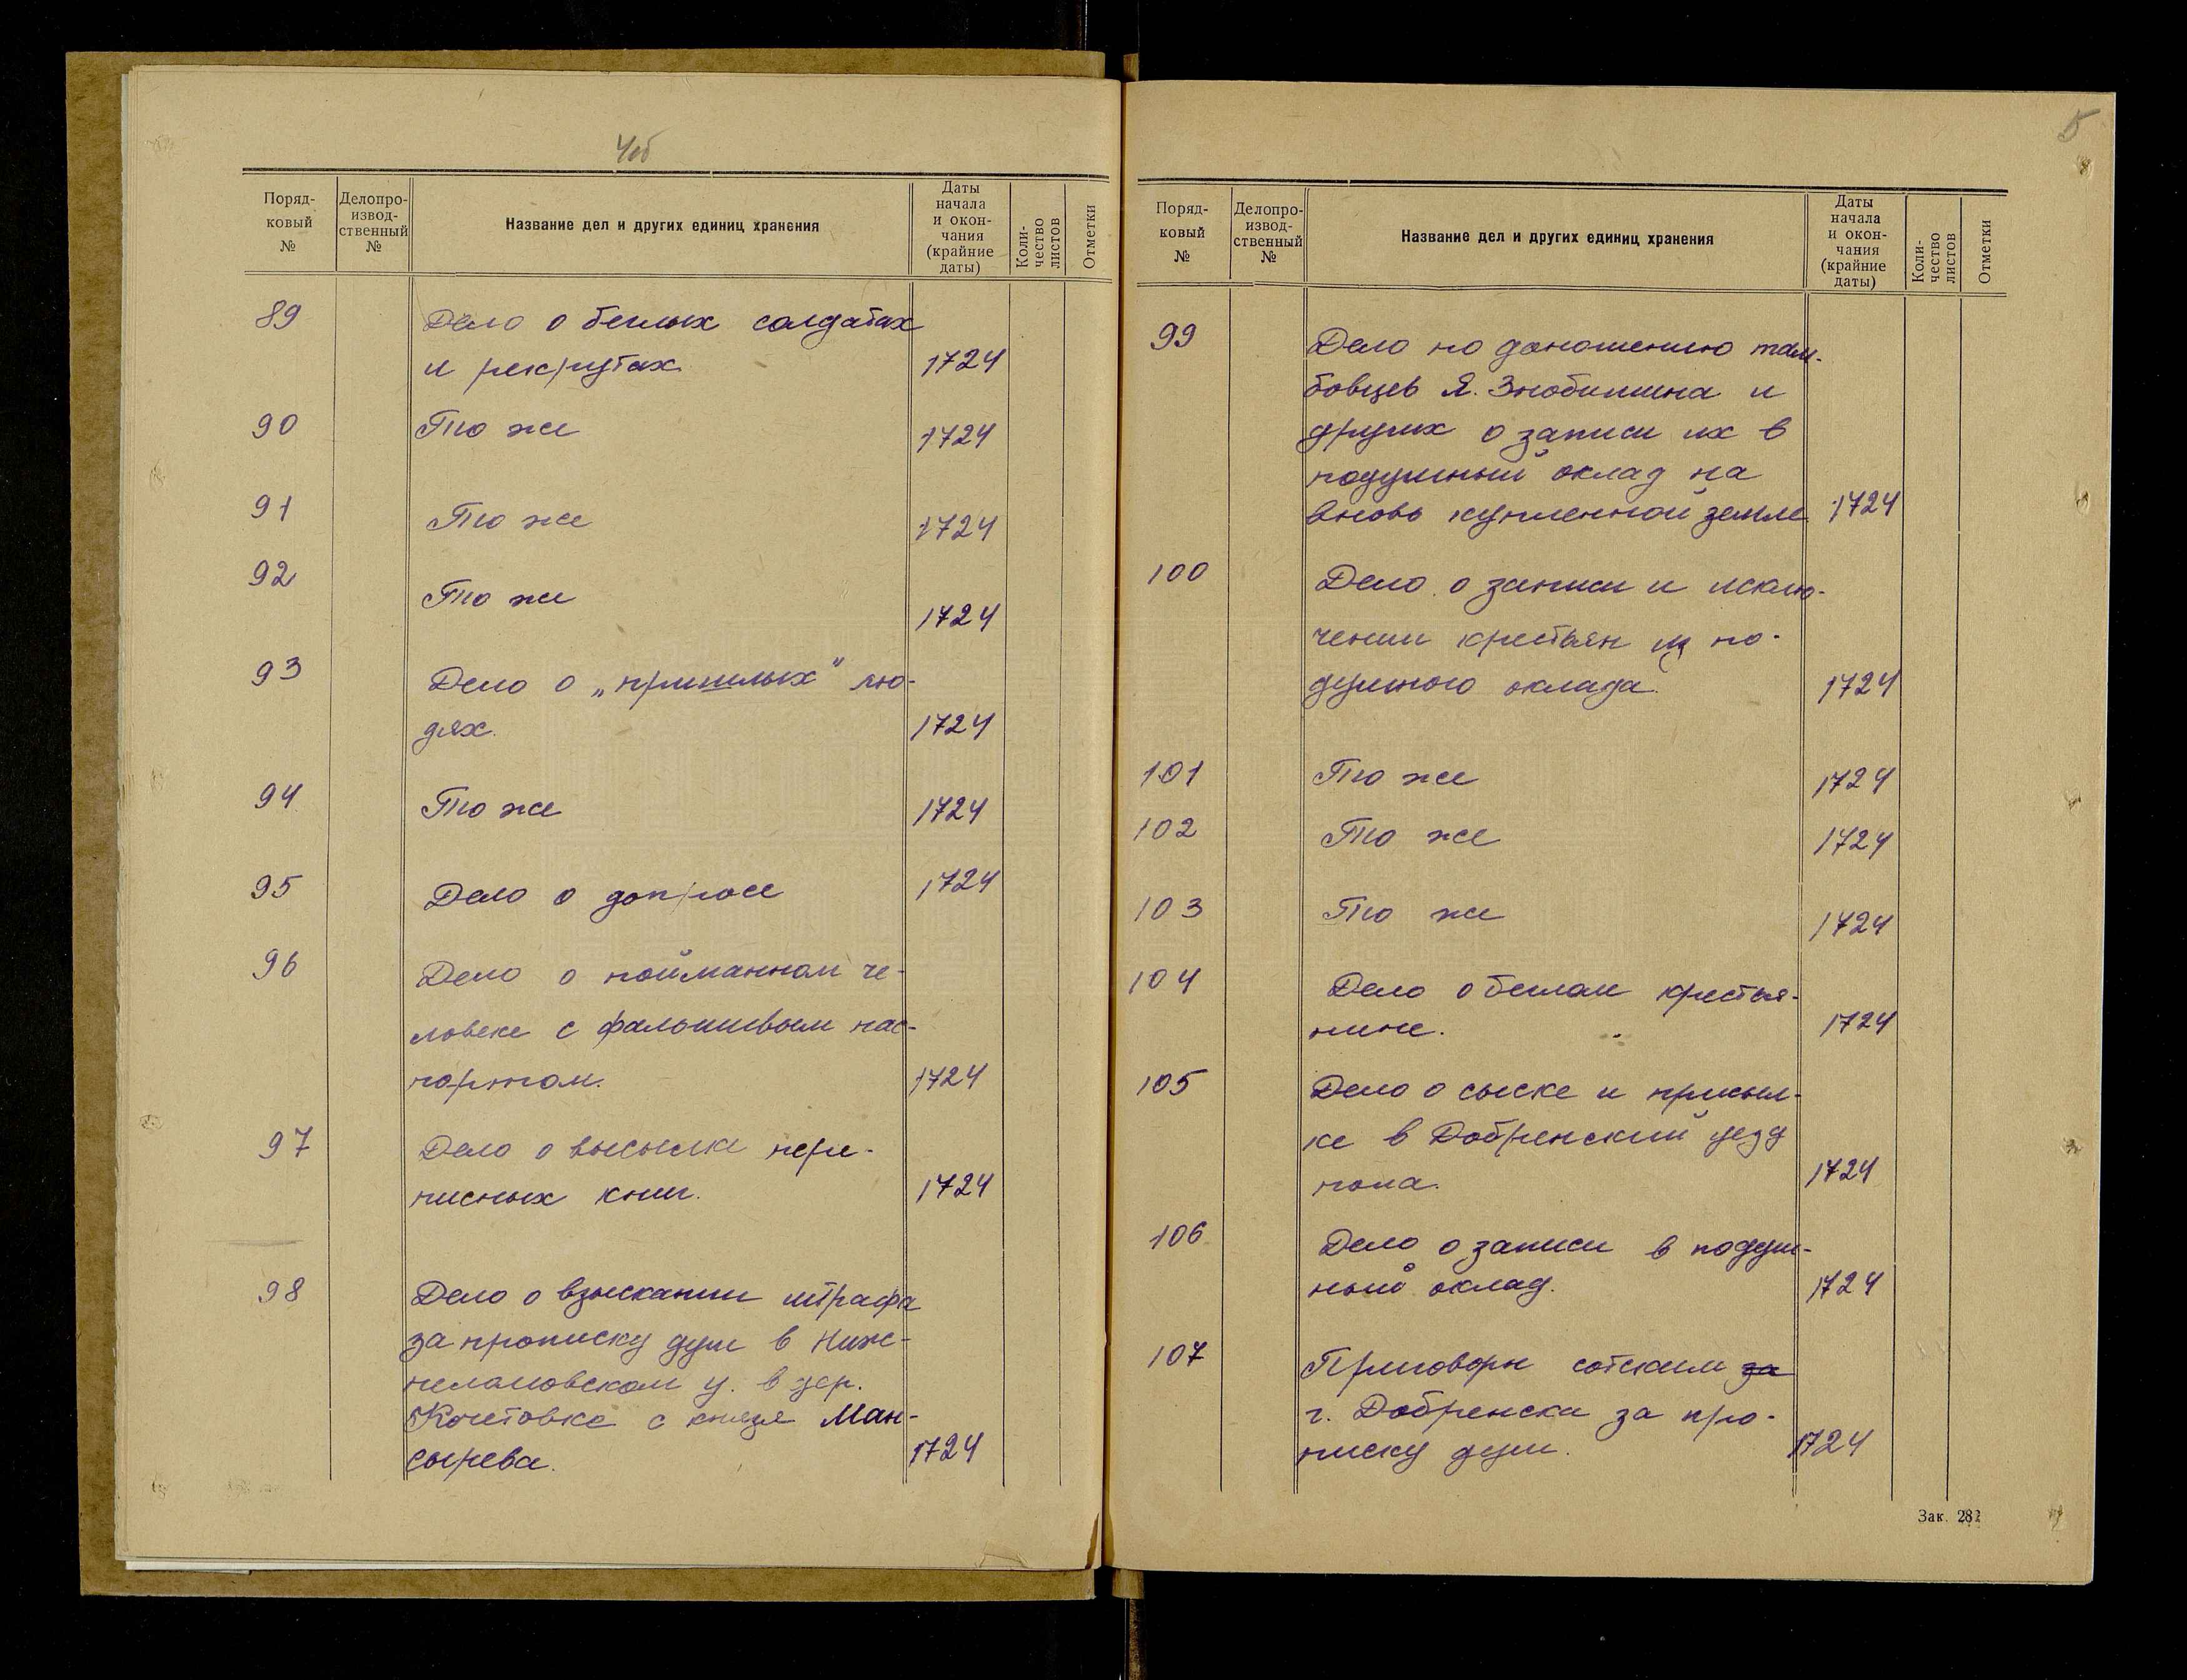 4об
Поряд-
ковый
№
Делопро-
извод-
ственный
№
Название дел и других единиц хранения
Даты
начала
и окон-
чания
(крайние
даты)
Коли-
чество
листов
Отметки
89
Дело о беглых солдатах
и рекрутах
1724
90
То же
1724
91
То же
1724
92
То же
1724
93
Дело о „пришлых" лю-
дях.
1724
94
То же
1724
95
Дело о допросе
1724
96
Дело о пойманном че-
ловеке с фальшивым пас-
портом.
1724
97
Дело о высылке пере-
писных книг.
1724
98
Дело о взыскании штрафа
за прописку душ в Ниж-
неломовском у. в дер.
Кочетовке с князя Ман-
сырева.
1724
5
Поряд-
ковый
№
Делопро-
извод-
ственный
№
Название дел и других единиц хранения
Даты
начала
и окон-
чания
(крайние
даты)
Коли-
чество
листов
Отметки
99
Дело по доношению там-
бовцев Я. Знобишина и
других о записи их в
подушный оклад на
вновь купленной земле
1724
100
Дело о записи и исклю-
чении крестьян из по-
душного оклада.
1724
101
То же
1724
102
То же
1724
103
То же
1724
104
Дело о беглом крестья-
нине.
1724
105
Дело о сыске и присыл-
ке в Добренский уезд
попа.
1724
106
Дело о записи в подуш-
ный оклад.
1724
107
Приговоры сотским за
г. Добренска за про-
писку душ.
1724
Зак. 282